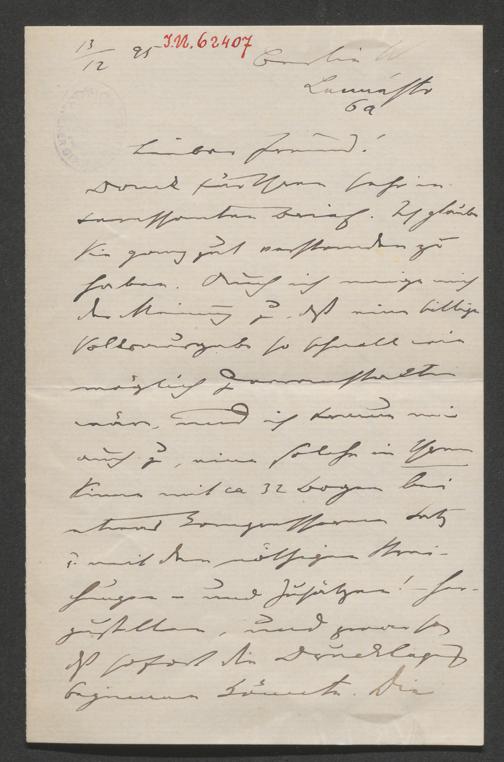 13/12 95 I.N. 62407
Berlin W
Lennéstr
6a
Lieber Freund!
Dank für Ihren sehr in-
teressanten Brief. Ich glaube
Sie ganz gut verstanden zu
haben. Auch ich neige mich
der Meinung z. daß eine billige
Volksausgabe so schnell wie
möglich zu veranstalten
wäre, und ich traue mir
auch z, eine solche in Ihrem
Sinne mit ca 32 Bogen bei
etwas compressem Satz
& mit den nöthigen Strei-
chungen – und Zusätzen! – her-
zustellen, und zwar so
daß sofort die Drucklegung
beginnen könnte. Die